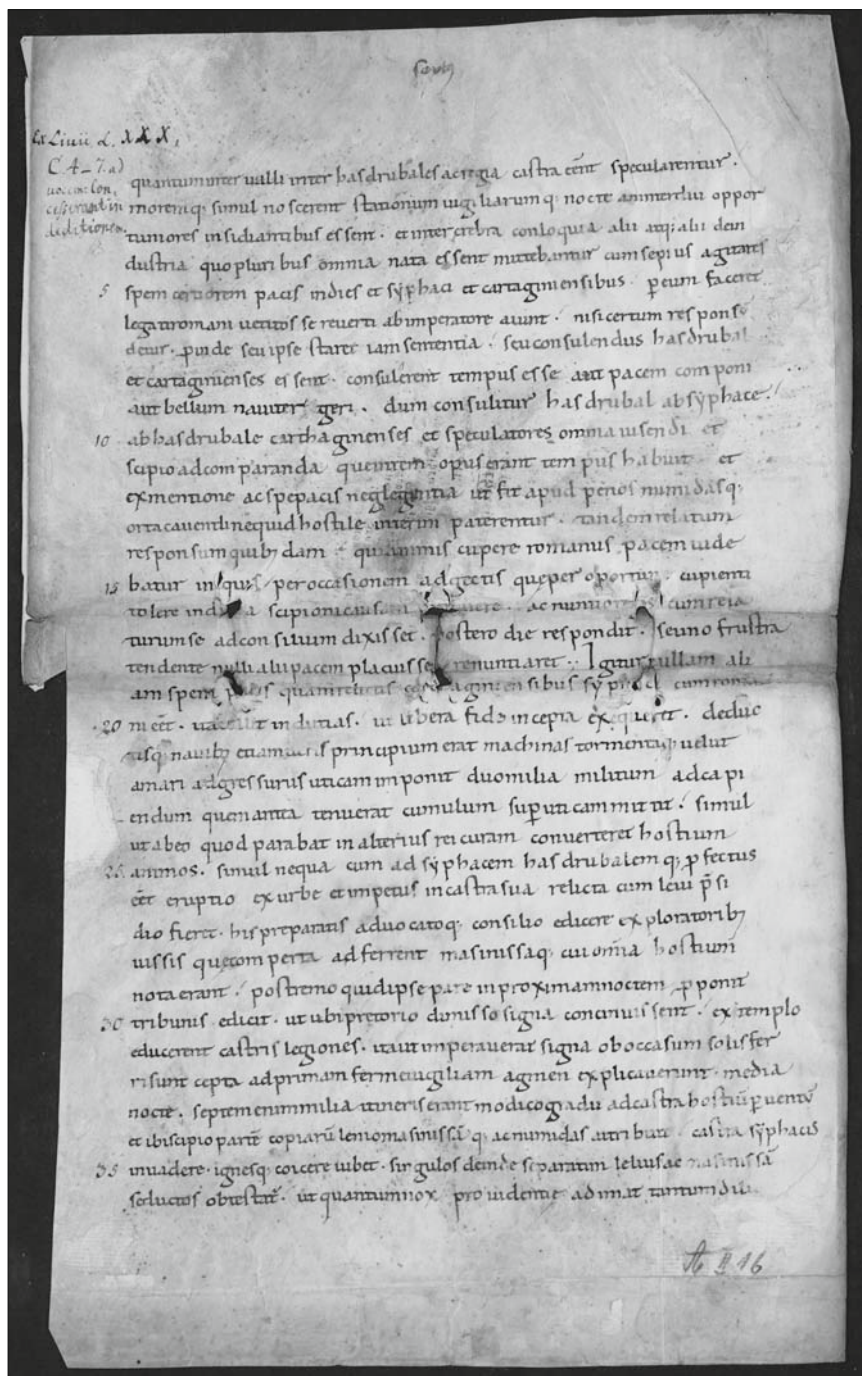 Ex Livii L. XXX,
C. 4_7. ad
vocem: Con,
cesserant in
deditionem.
quantum inter ualli inter hasdrubales ac regia castra eēnt specularentur.
moremq; simul noscerent stationum uigiliarumq; nocte an interdiu oppor
tuniores insidiantibus essent. et inter crebra conloquia alii atq; alii dein
dustria quo pluribus omnia nata essent mittebantur cum sepius agitares
5 spem certiorem pacis indies et sẏphaci et cartaginiensibus. ꝑ eum faceret
legati romani uetitos se reverti ab imperatore aiunt. nisi certum respons
detur. ꝓinde seu ipse staret iam sententia. seu consulendus hasdrubal
et cartaginienses essent. consulerent tempus esse aut pacem componi
aut bellum naviter geri. dum consulitur hasdrubal ab sẏphace.
10 ab hasdrubale carthaginenses et speculatores omnia uisendi et
scipio ad comparanda que in rem opus erant tempus habuit et
ex mentione ac spe pacis neglegentia ut fit apud penos numidasq;
orta cavendi nequid hostile interim paterentur. tandem relatum
responsum quibꝫdam quia nimis cupere romanus pacem uide
15 batur per occasionem adiectis que per oportun cupienti
tolere scipioni causam ac nuntio cum rela
turum se ad consilium dixisset. postero die respondit. se uno frustra
tendente nulli alii pacem placuisse renuntiaret. Igitur nullam ali
am spem pacis quam relictis cartaginiensibus sẏphaci cum roma
20 ni eēt. indutias. ut libera fide incepta exequeret. deduc
tisq; navibꝫ etiam principium erat machinas tormentaq; uelut
a mari adgressurus uticam imponit duo milia militum ad capi
endum quem antea tenuerat cumulum suꝑ uticam mittit. simul
ut ab eo quod parabat in alterius rei curam converteret hostium
25 animos. simul nequa cum ad sẏphacem hasdrubalemq; ꝓfectus
eēt eruptio ex urbe et impetus in castra sua relicta cum levi p̄si
dio fieret. his preparatis advocatoq; consilio edicere exploratoribꝫ
iussis que comperta adferrent masinissaq; cui om̄ia hostium
nota erant. postremo quid ipse pare in proximam noctem ꝓponit
30 tribunis edicit. ut ubi pretorio dimisso signa concinuissent. extemplo
educerent castris legiones. ita ut imperauerat signa ob occasum solis fer
ri sunt cepta ad primam ferme uigiliam agmen explicauerunt. media
nocte. septem enim milia itineris erant modico gradu ad castra hostiū ꝑventū
et ibi scipio partē copiarū lenio masinissāq; ac numidas attribuit castra sẏphacis
35 invadere. ignesq; coicere iubet. singulos deinde separatim lelius ac masinissā
seductos obtestat̄. ut quantum nox providentie adimat tantum dili
A II 16